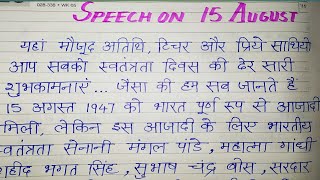 SPEECH ON 15 AUGUST
यहां मौजूद अतिथि, टिचर और प्रिये साथियो
आप सबको स्वतंत्रता दिवस की ढेर सारी
शुभकामनाएं... जैसा की हम सब जानते हैं
15 अगस्त 1947 को भारत पूर्ण रूप से आजादी
मिली, लेकिन इस आजादी के लिए भारतीय
स्वतंत्रता सेनानी मंगल पांडे, महात्मा गांधी
शहीद भगत सिंह, सुभाष चंद्र बोस, सरदार